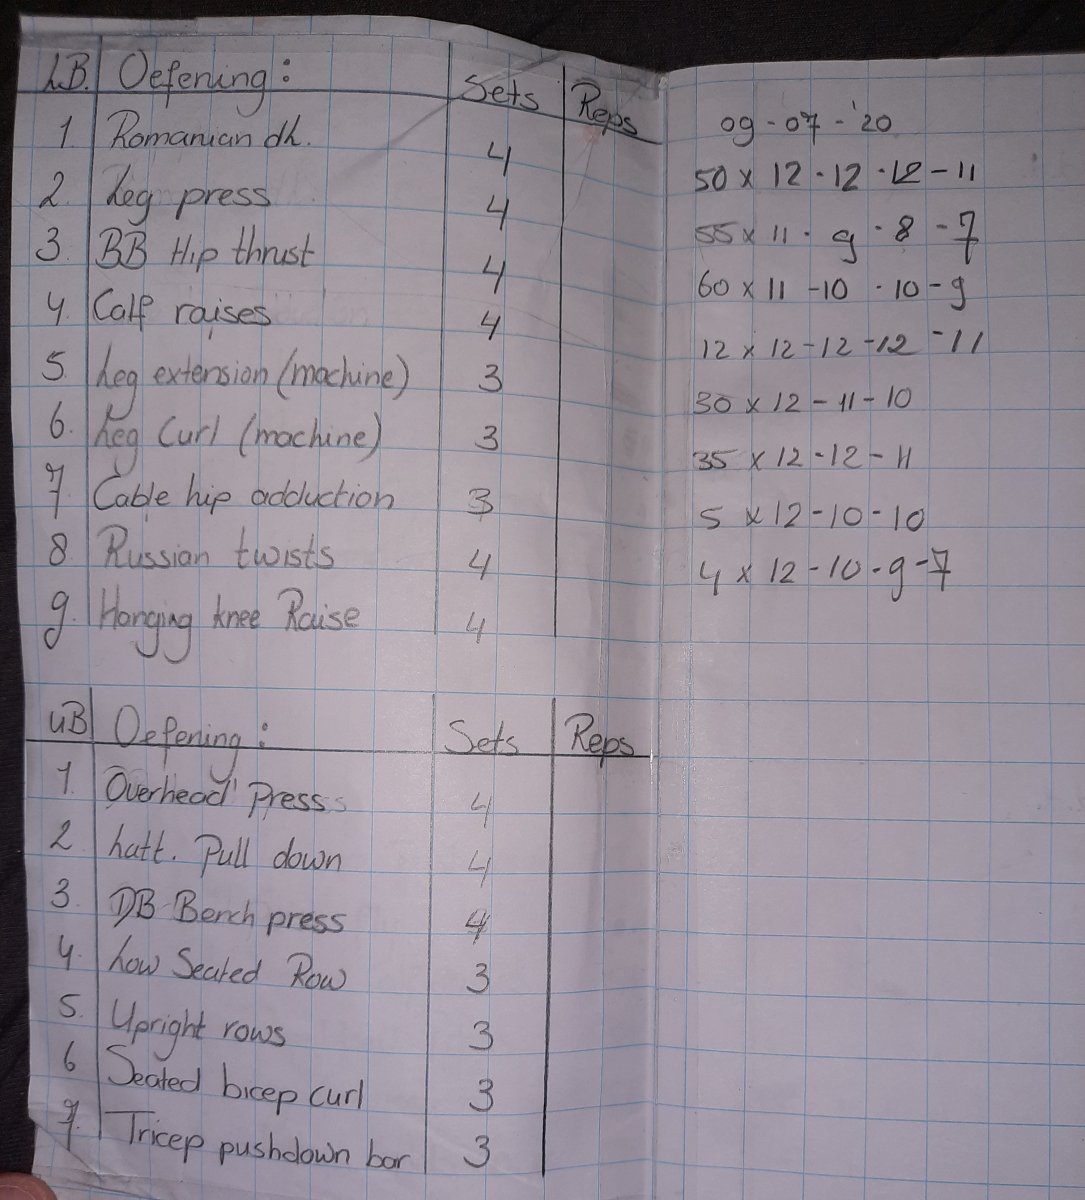 LB. Oefening: Sets Reps 09-07-'20
1. Romanian dh. 4 50 x 12-12-12-11
2. Leg press 4 55 x 11-9-8-7
3. BB Hip thrust 4 60 x 11-10-10-9
4. Calf raises 4 12 x 12-12-12-11
5. Leg extension (machine) 3 30 x 12-11-10
6. Leg Curl (machine) 3 35 x 12-12-11
7. Cable hip adduction 3 5 x 12-10-10
8 Russian twists 4 4 x 12-10-9-7
9. Hanging knee Raise 4
UB Oefening: Sets Reps
1. Overhead Press 4
2. Latt. Pull down 4
3. DB Bench press 4
4. Low Seated Row 3
5. Upright rows 3
6 Seated bicep curl 3
7. Tricep pushdown bar 3